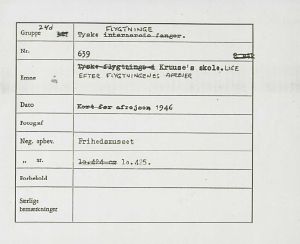 24d FLYGTNINGE
Gruppe Tyske internerede fanger.
Nr. 659
Tyske flygtninge i Kruuse's skole. LIGE
Emne EFTER FLYGTNINGENES AFREJSE
Dato Kort før afrejsen 1946
Fotograf
Neg. opbev. Frihedsmuseet
" nr. lo.425.
Forbehold
Særlige
bemærkninger